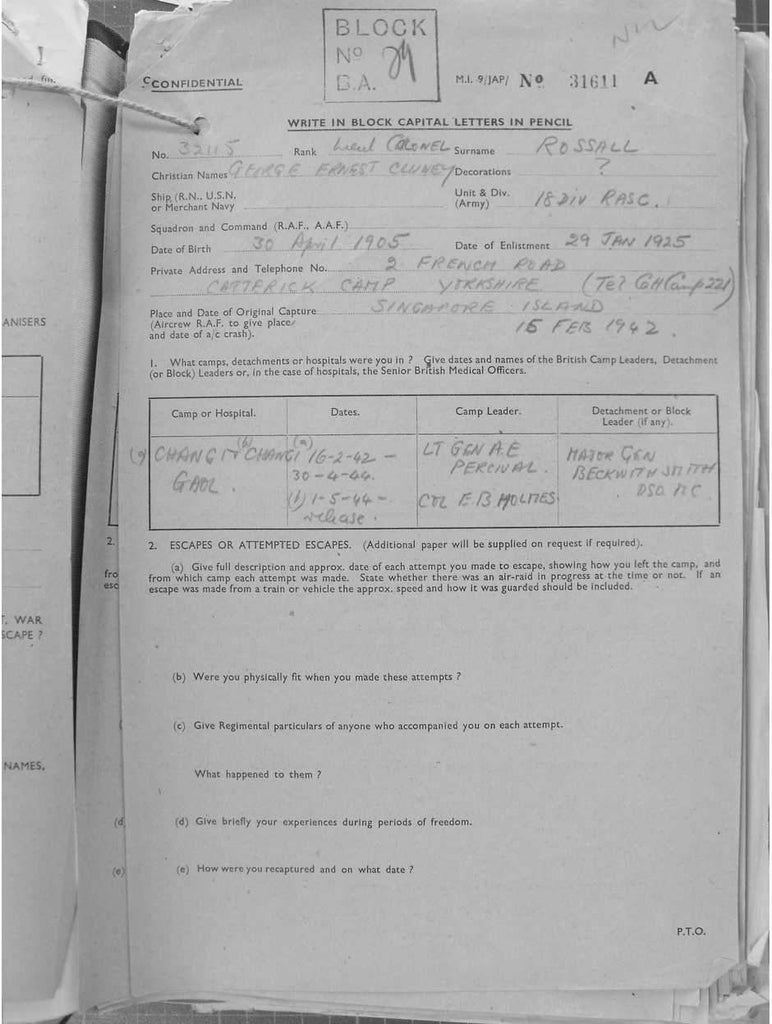 BLOCK
Nº
B.A.
CCONFIDENTIAL
M.I. 9/JAP/ Nº 31611 A
WRITE IN BLOCK CAPITAL LETTERS IN PENCIL
No. Rank Lieut COLONEL Surname ROSSALL
Christian Names GEORGE ERNEST CLUNEY Decorations ?
Ship (R.N., U.S.N. or Merchant Navy
Unit & Div. (Army) 18 DIV RASC.
Squadron and Command (R.A.F., A.A.F.)
Date of Birth 30 April 1905 Date of Enlistment 29 JAN 1925
Private Address and Telephone No. 2 FRENCH ROAD
CATTERICK CAMP YORKSHIRE (Tel Camp 221)
Place and Date of Original Capture SINGAPORE ISLAND
(Aircrew R.A.F. to give place
and date of a/c crash). 15 FEB 1942.
1. What camps, detachments or hospitals were you in ? Give dates and names of the British Camp Leaders, Detachment
(or Block) Leaders or, in the case of hospitals, the Senior British Medical Officers.
Camp or Hospital. Dates. Camp Leader. Detachment or Block Leader (if any).
(a) CHANGI (b) CHANGI GAOL.
(a) 16-2-42 -
30-4-44.
(b) 1-5-44 -
release.
LT GEN A.E
PERCIVAL.
COL E B HOLMES
MAJOR GEN
BECKWITH SMITH
DSO MC
2. ESCAPES OR ATTEMPTED ESCAPES. (Additional paper will be supplied on request if required).
(a) Give full description and approx. date of each attempt you made to escape, showing how you left the camp, and
from which camp each attempt was made. State whether there was an air-raid in progress at the time or not. If an
escape was made from a train or vehicle the approx. speed and how it was guarded should be included.
(b) Were you physically fit when you made these attempts ?
(c) Give Regimental particulars of anyone who accompanied you on each attempt.
What happened to them ?
(d) Give briefly your experiences during periods of freedom.
(e) How were you recaptured and on what date ?
P.T.O.
ANISERS
T. WAR
SCAPE ?
NAMES,
2.
fro
esc
(d
(e)